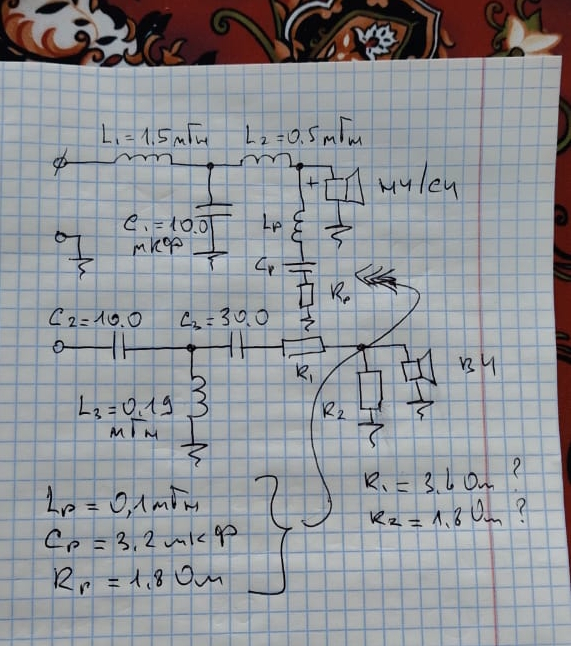 L₁=1.5мГн L₂=0.5мГн
+ НЧ/СЧ
C₁=10.0
мкФ
Lр
Cр
Rр
C₂=10.0 C₃=30.0
R₁
ВЧ
L₃=0.19
мГн
R₂
Lр = 0,1мГн
Cр = 3.2мкФ
Rр = 1.8 Ом
R₁ = 3.6 Ом ?
R₂ = 1.8 Ом ?